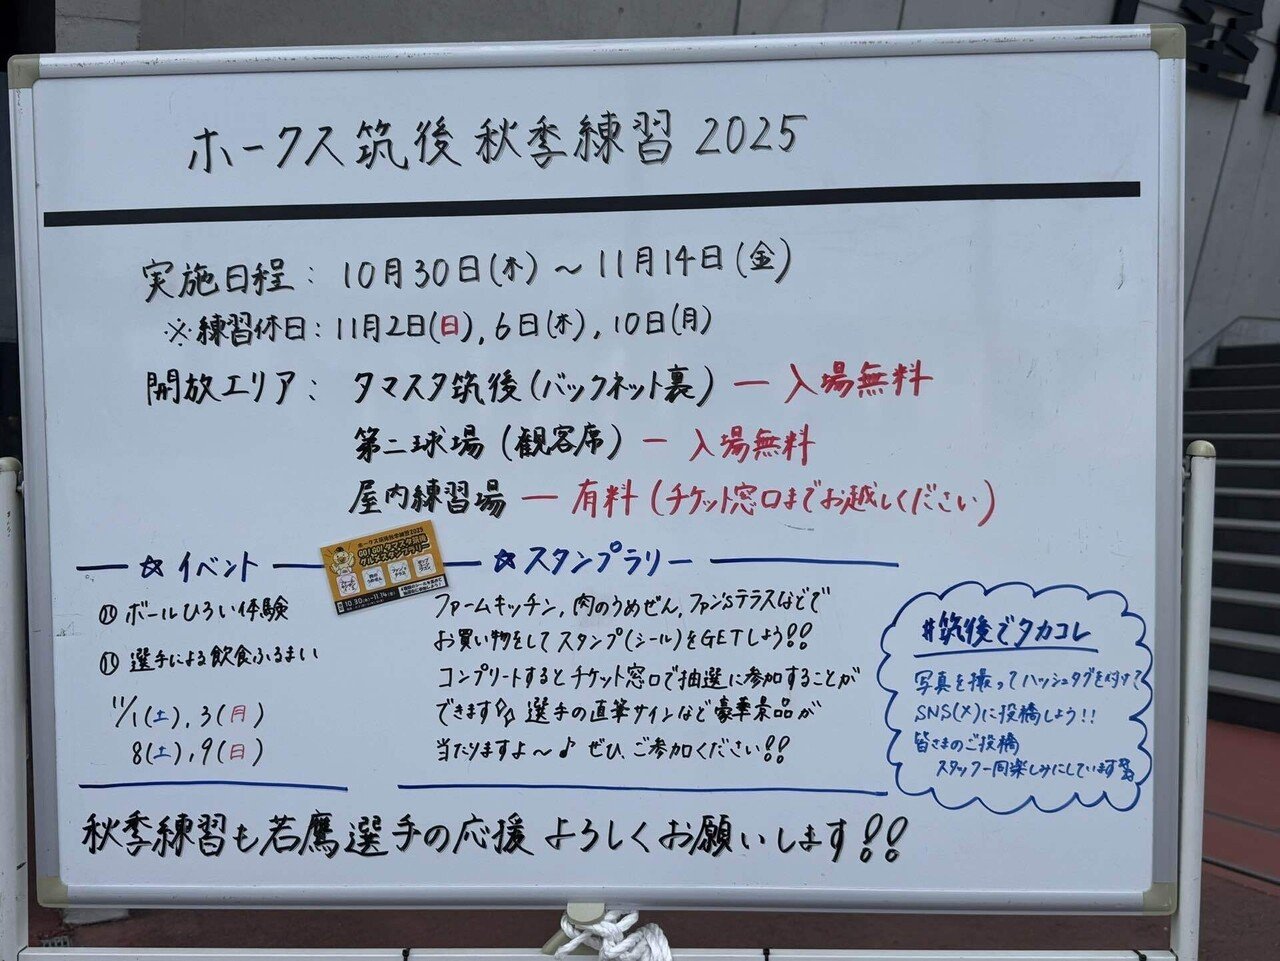 ホークス筑後 秋季練習 2025
実施日程: 10月30日(木) ～ 11月14日(金)
※練習休日: 11月2日(日), 6日(木), 10日(月)
開放エリア: タマスタ筑後(バックネット裏) ー 入場無料
第二球場(観客席) ー 入場無料
屋内練習場 ー 有料(チケット窓口までお越しください)
☆イベント
ボールひろい体験
選手による飲食ふるまい
11/1(土), 3(月)
8(土), 9(日)
ホークス筑後秋季練習2025
GO! GO! タマスタ筑後
グルメスタンプラリー
10.30(木)-11.14(金)
☆スタンプラリー
ファームキッチン, 肉のうめぜん, ファン'sテラスなどで
お買い物をしてスタンプ(シール)をGETしよう!!
コンプリートするとチケット窓口で抽選に参加することが
できます 選手の直筆サインなど豪華景品が
当たりますよ～♪ ぜひ、ご参加ください!!
#筑後でタカコレ
写真を撮ってハッシュタグを付けて
SNS(X)に投稿しよう!!
皆さまのご投稿
スタッフ一同楽しみにしています
秋季練習も若鷹選手の応援 よろしくお願いします!!